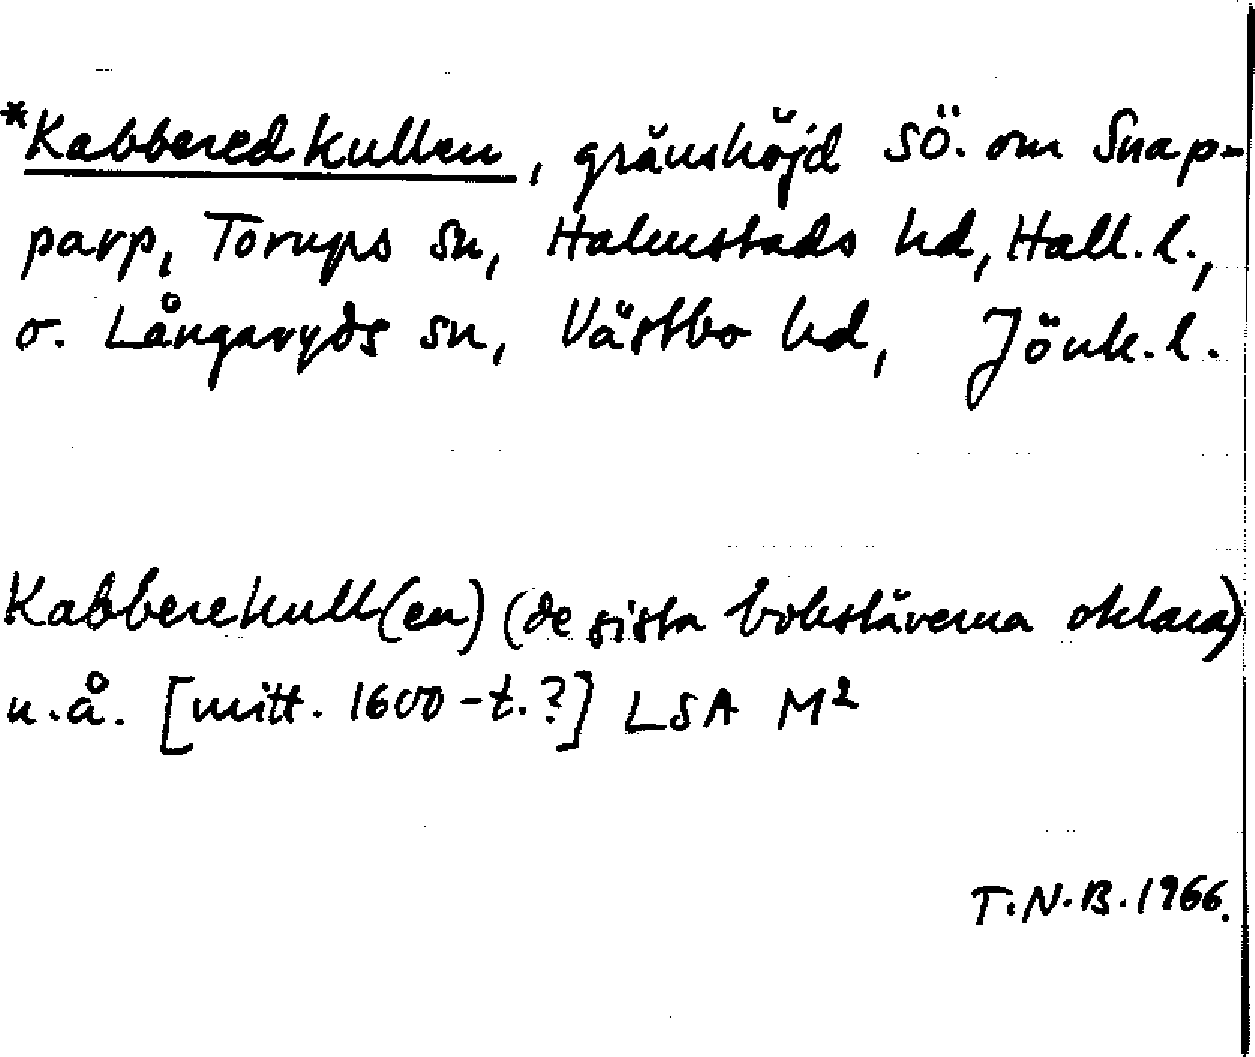 *Kabberedkullen, gränshöjd SÖ. om Snap-
parp, Torups sn, Halmstads hd, Hall. l.,
o. Långaryds sn, Västbo hd, Jönk. l.
Kabberekull(en) (de sista bokstäverna oklara)
u.å. [mitt. 1600-t.?] LSA M²
T.N.B. 1966.